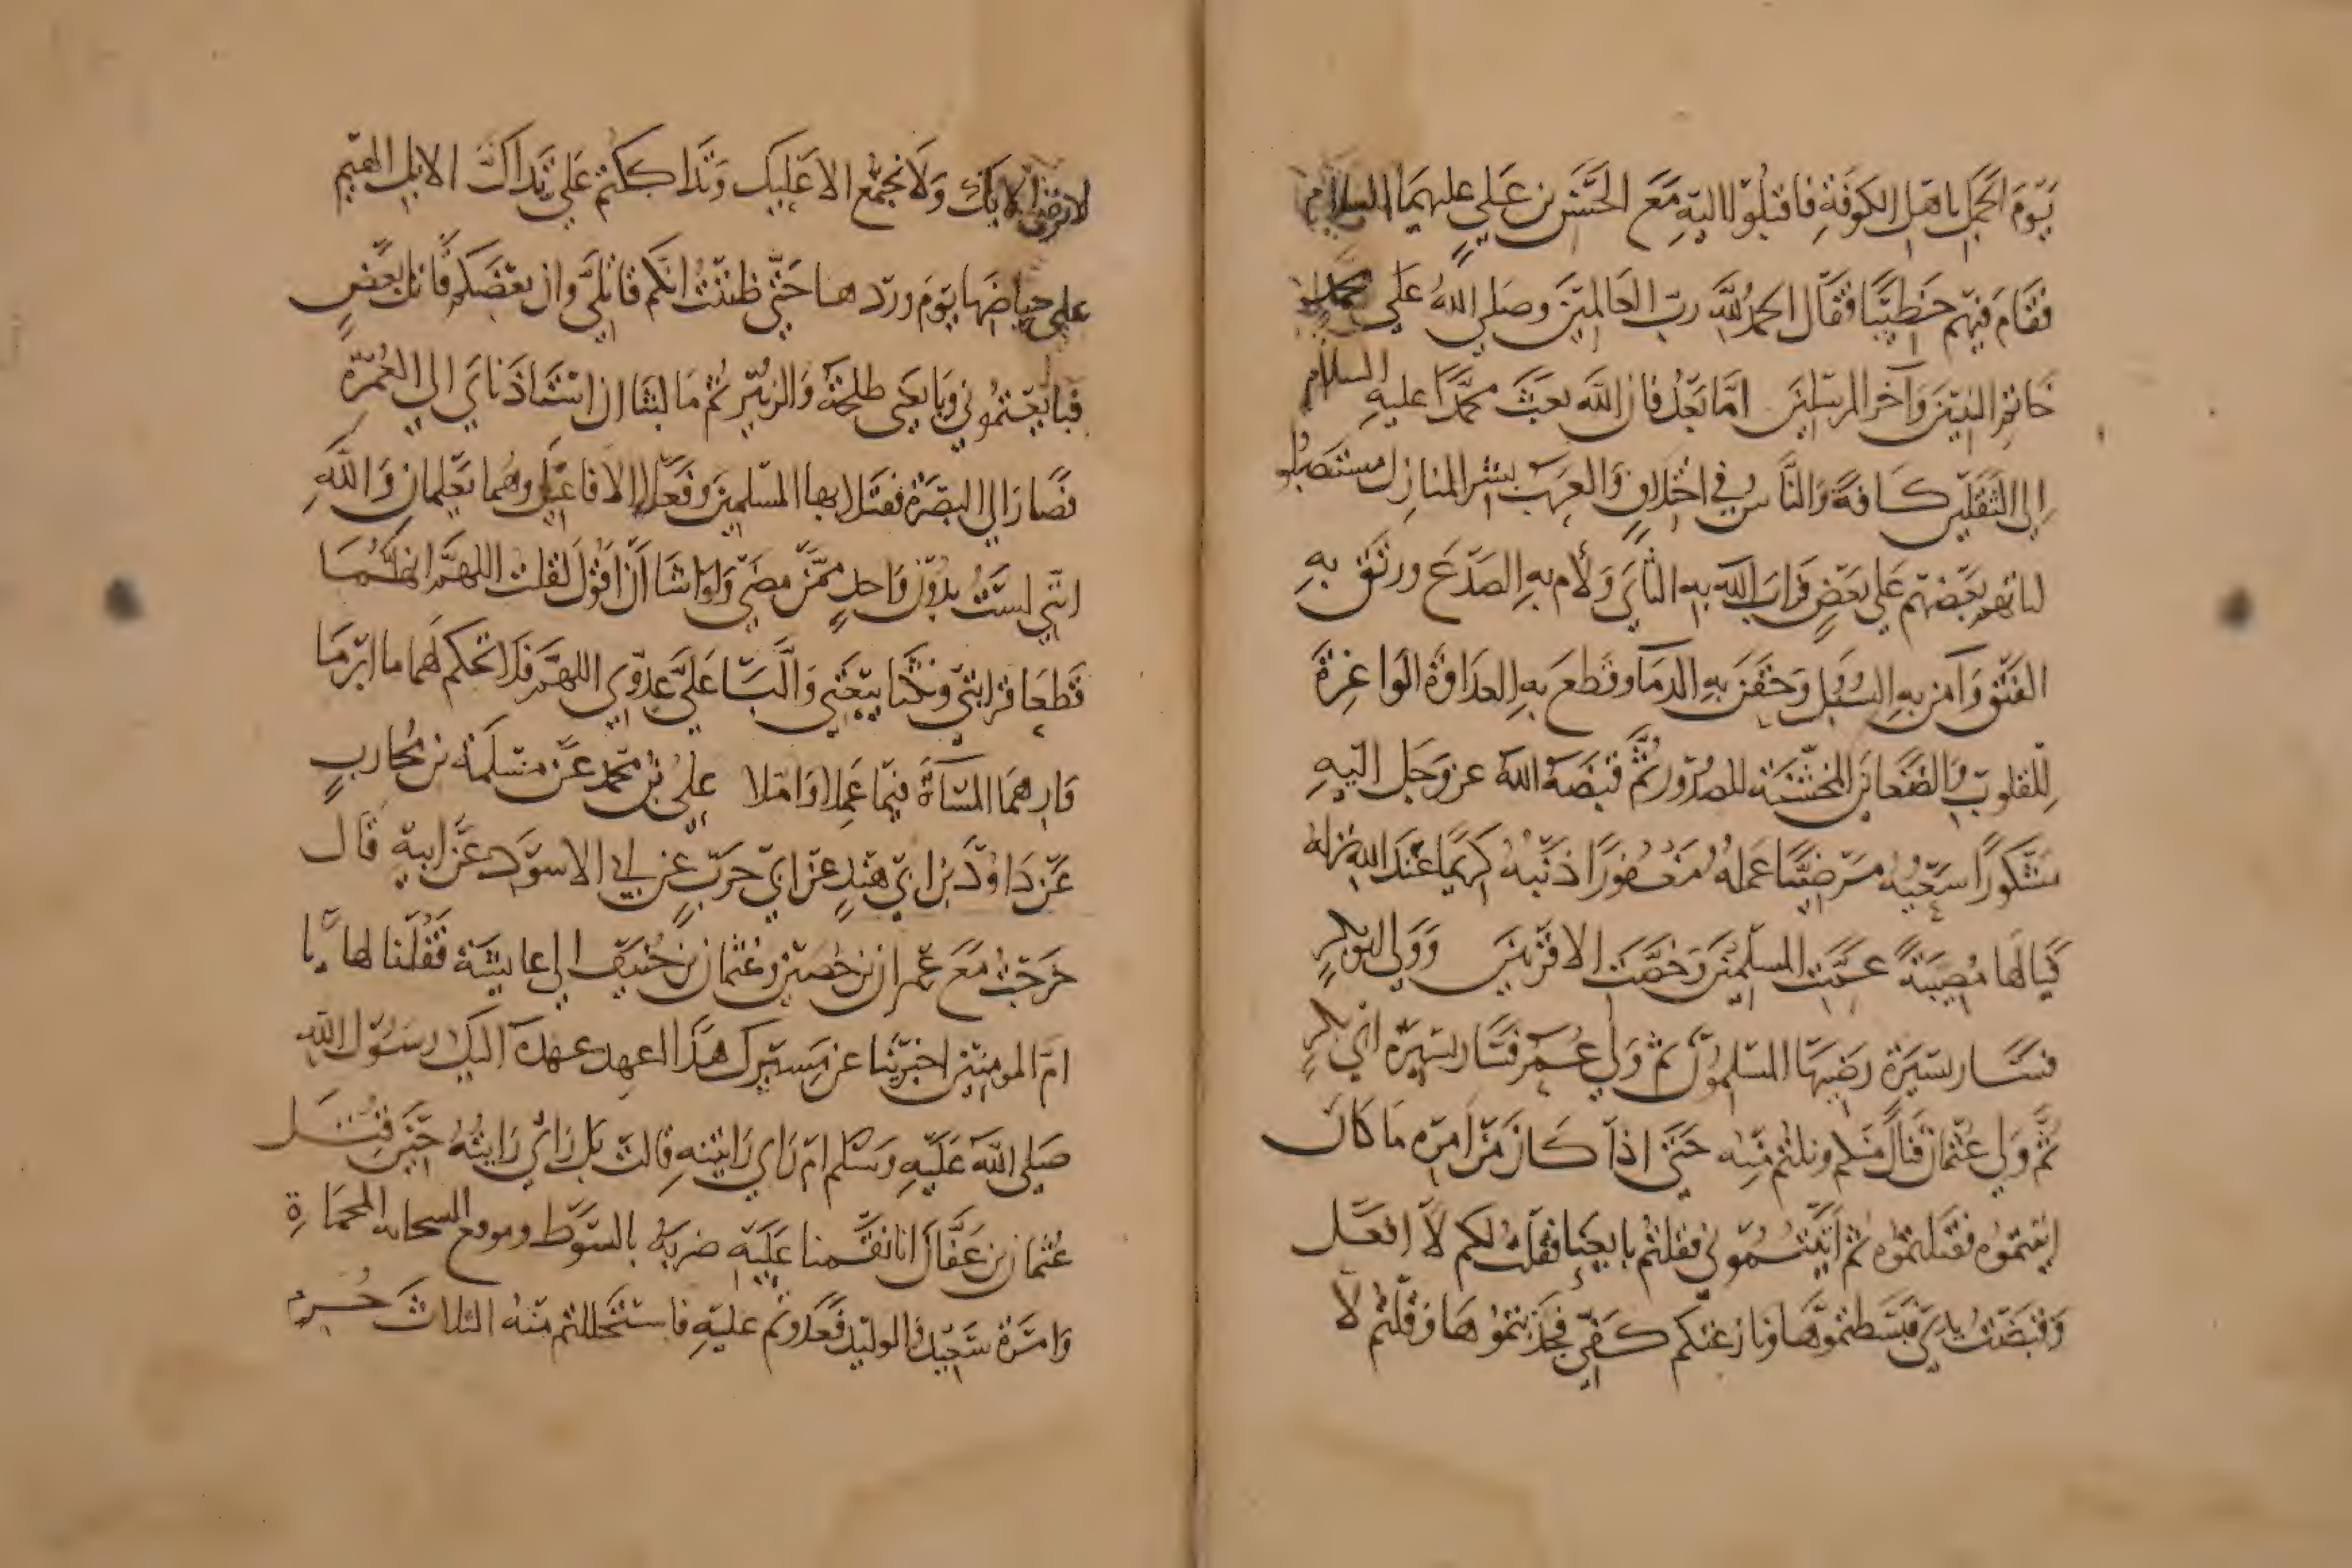 يَوْمَ الجَمَل باهل الكوفَةِ فاقبلوا اليهِ مَعَ الحَسَن بن عَلي عليهما السلام
فقَامَ فيهم خَطيبًا فقَال الحمدُ للَّهِ ربّ العَالمينَ وصَلى اللهُ عَلى محمد
خَاتم النبيّنَ وَآخر المرسَلينَ امّا بَعْدُ فان اللَّه بعَثَ محمَّدًا عليهِ السلام
إلى الثقَلَيْن كَافةً وَالنَّاسُ في اختلافٍ وَالعَرَبُ بشر المنازل مستضعفون
لما بهم بَعْضهم عَلى بَعْضٍ فرابَ اللَّه بهِ الثأيَ وَلأم بهِ الصَدْعَ ورتَقَ بهِ
الفَتْقَ وَآمن بهِ السُبل وَحَقَنَ بهِ الدمَا وقطعَ بهِ العدَاوَةَ الوَاغِرَةَ
لِلقلوب وَالضَغَاين المخشنَة للصدُور ثُمَّ قبَضَهُ اللهُ عز وَجَل اليْهِ
مشكورًا سَعْيُه مَرْضيًّا عَمله مَغْفُورًا ذَنْبُهُ كريمًا عنْدَ اللهِ نزله
فيَالَهَا مُصيبَةً عَمَّتِ المسلِمينَ وَخصَّت الاقرَبينَ وَوَلى ابو بكرٍ
فسَار بسيرَة رَضيَهَا المسْلِمُونَ ثم وَلي عُمَر فسَار بسيرَة ابي بكرٍ
ثُمَّ وَلي عثْمان فنَال منكم ونلتُم منْه حَتّى اذا كَانَ مَنْ امْره مَا كَانَ
اتيتمُوه فقتَلتموُه ثم اتَيْتُمُوني فقلتُم بايعنا فقلتُ لكم لاَ افعَل
وَقَبَضْتُ يدِي فبَسَطتموُهَا ونازعتكم كَفّي فجَذبْتمُوهَا وَقلتُم لاَ
لا نرضى الا بك وَلا نجتمعُ الا عَليكَ وَتدَاككتم عَلي تدَاكَّ الابل الهيم
على حياضها يوم وردهَا حَتّى ظننتُ انكم قاتلَيَّ وَان بعضَكم قاتل بعَضٍ
فبايعتمُوني وَبايَعَني طلحَةُ وَالزبَيْر ثم مَا لبثا ان استَاذَنَاي الى العُمْرَة
فصَارَا الى البصْرَة فقتَلا بها المسْلمينَ وفَعَلا الافاعيْل وهُما يَعْلمان وَاللهِ
انّي لستُ بدُونِ وَاحدٍ ممَّنْ مضَى وَلو اشا أنْ اقول لَقلت اللهمَّ انهُما
قَطعَا قرَابتي وَنكثَا بيْعَتي وَألّبَا عَليَّ عدُوّي اللهمَّ فلا تحكم لهَما ما ابْرَمَا
وَارهمَا المسَاَةَ فيمَا عَملا وَامَلا عليُ بن محمد عَنْ مَسْلمَةَ بن محُاربٍ
عَنْ دَاوُدَ بن ابي هنْدٍ عَن ابي حَرْبٍ عن ابي الاسوَد عَنْ ابيه قَال
خَرَجْتُ مَعَ عمران بن حُصَيْن وعُثمان بن حُنَيف الى عايشَة فَقُلنا لهَا يا
امَّ المومنيْن اخبرينَا عن مَسيرك هذا العهد عهدَه اليك رسُوْل اللهِ
صَلى اللهُ عَليْهِ وَسَلم ام رَاي رَايْتهِ قالتْ بل رَايٌ رَايتُهُ حيْن قُتِل
عُثمان بن عَفَّان انا نقَمنا عَليْه ضربَهُ بالسَوْط وموقع السحابة المحمَاةِ
وَامرَة سَعيْد والوليد فعَدَوْتم عليْهِ فاستحْللتم منْهُ الثلاثَ حُرم